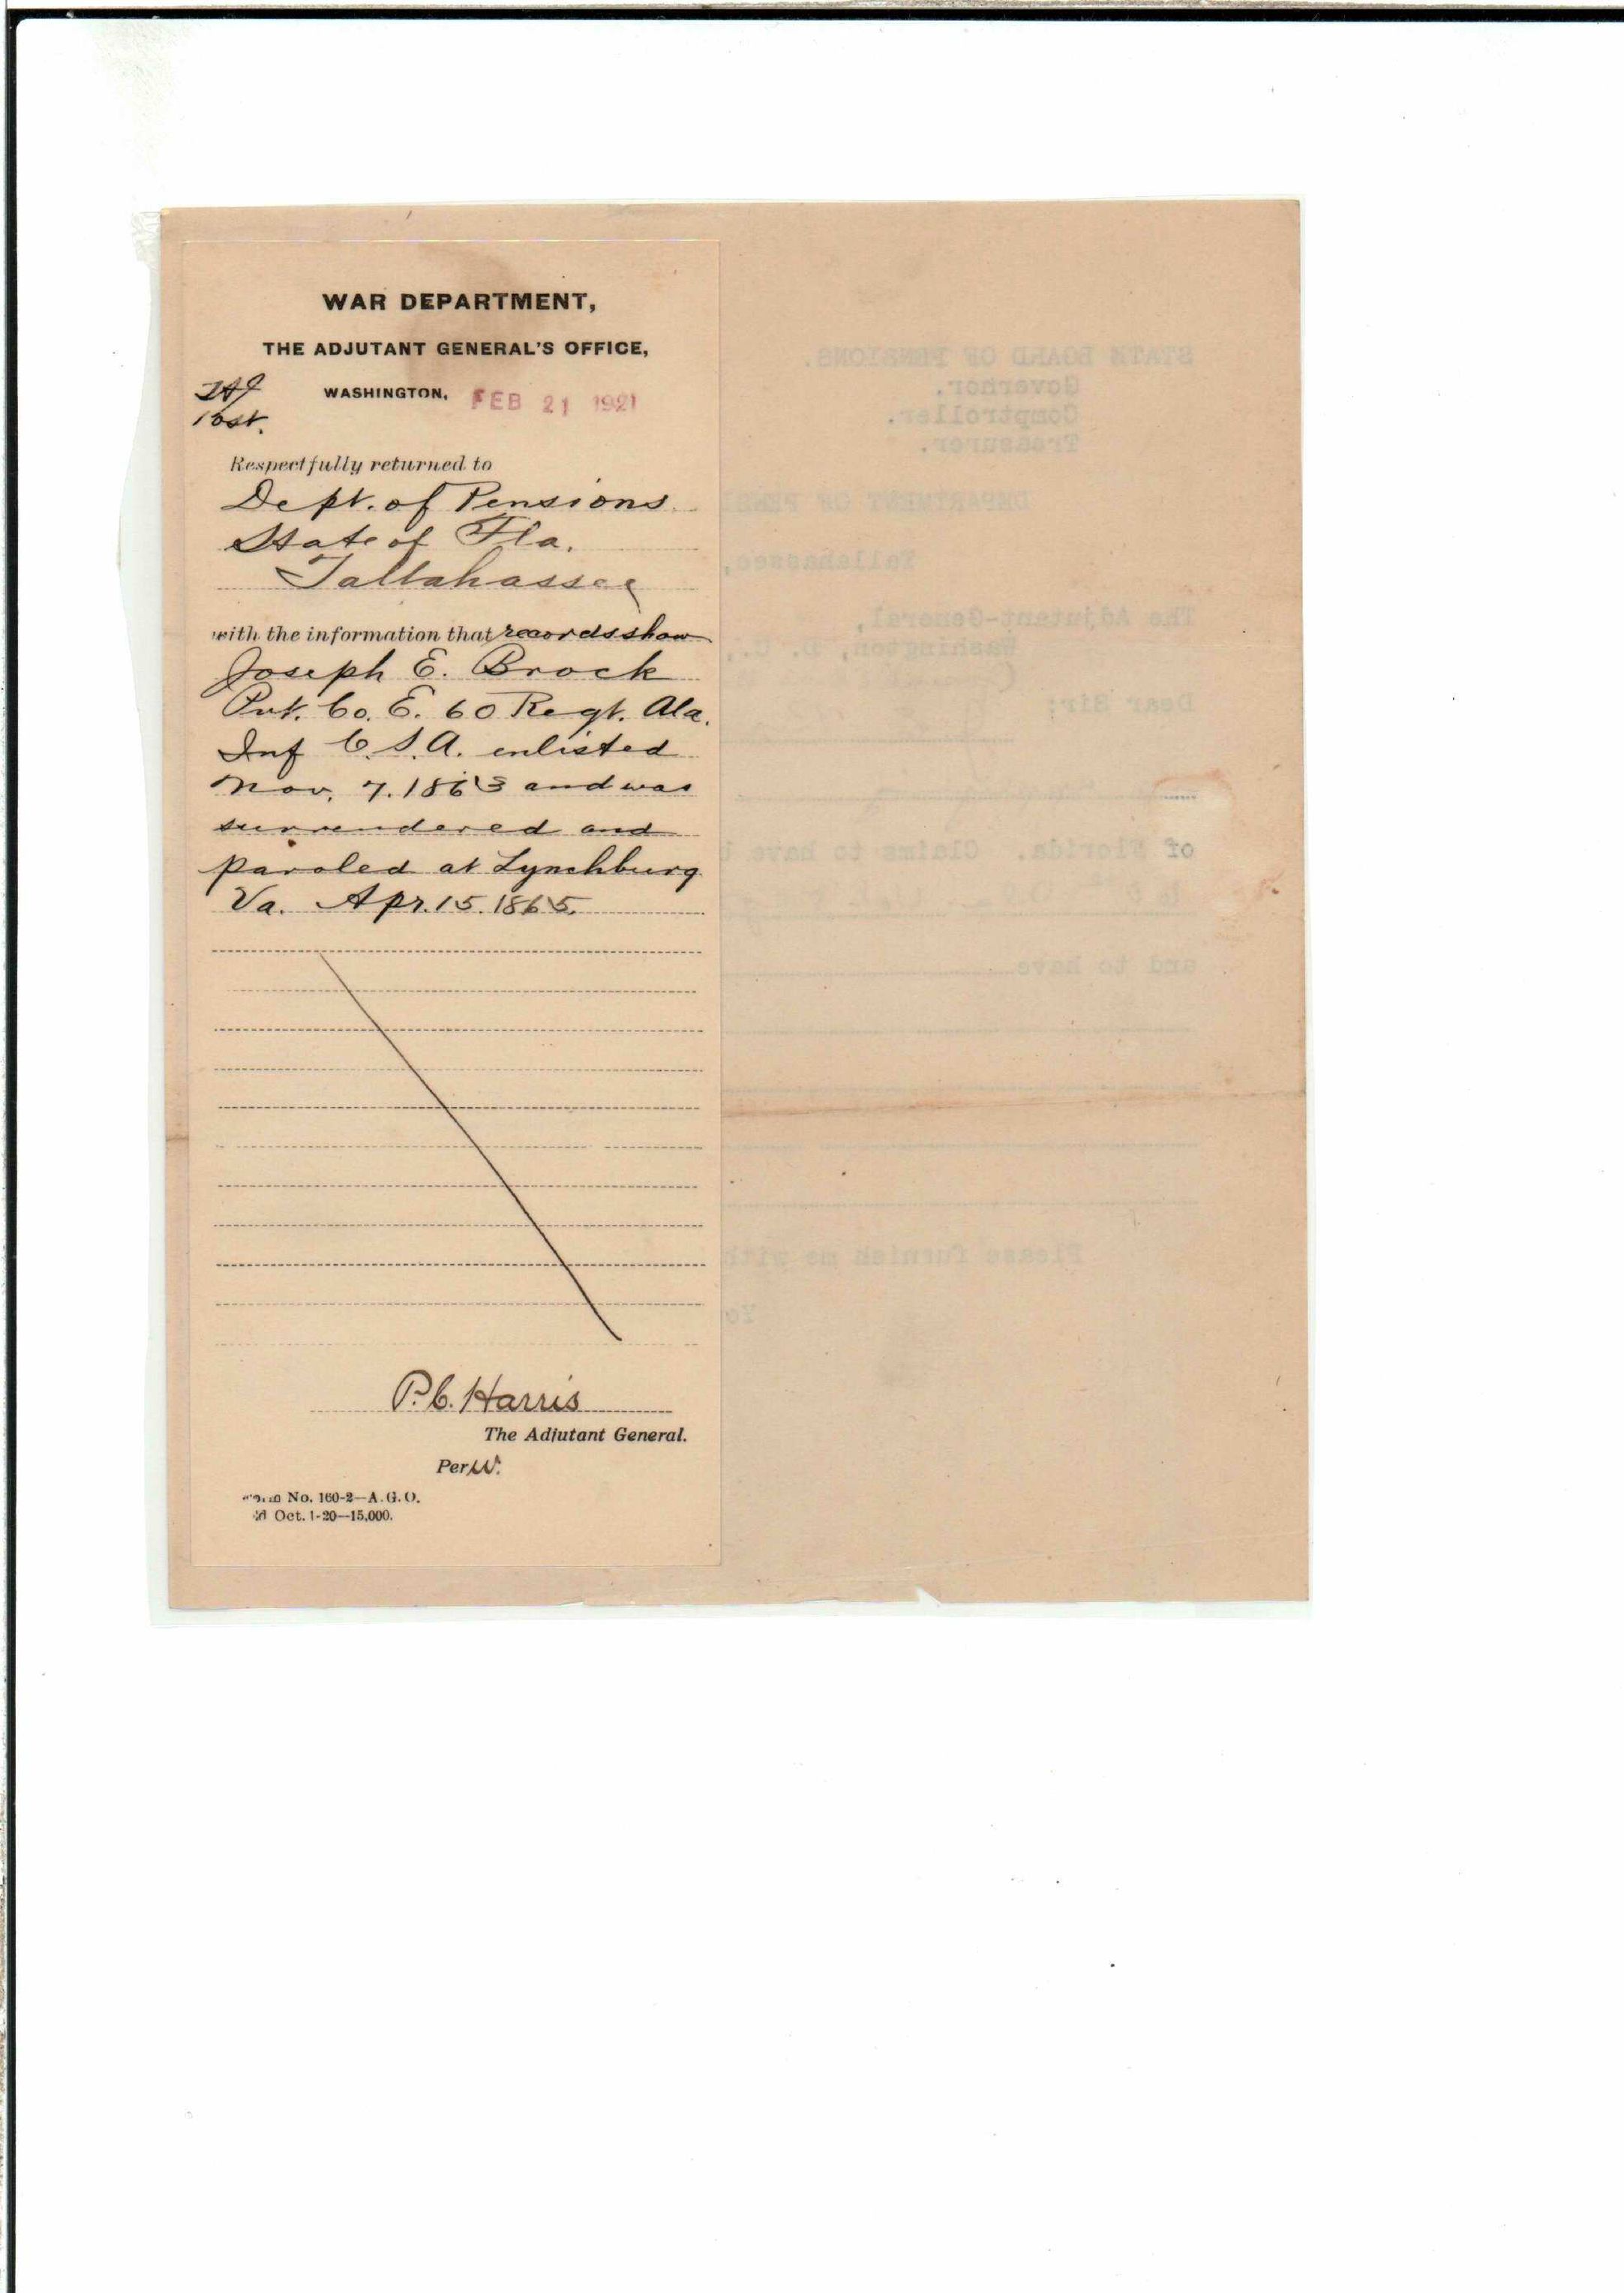 WAR DEPARTMENT,
THE ADJUTANT GENERAL'S OFFICE,
WASHINGTON, FEB 21 1921
Respectfully returned to
Dept. of Pensions
State of Fla.
Tallahassee
with the information that records show
Joseph E. Brock
Pvt. Co. E. 60 Regt. Ala.
Inf C.S.A. enlisted
Nov. 7. 1863 and was
surrendered and
paroled at Lynchburg
Va. Apr. 15. 1865.
P. C. Harris
The Adjutant General.
Per W.
No. 160-2—A.G.O.
Oct. 1-20—15,000.
STATE BOARD OF PENSIONS.
Governor.
Comptroller.
Treasurer.
DEPARTMENT OF
Tallahassee,
The Adjutant-General,
Washington, D. C.,
Dear Sir:
of Florida. Claims to have
and to have
Please furnish me with